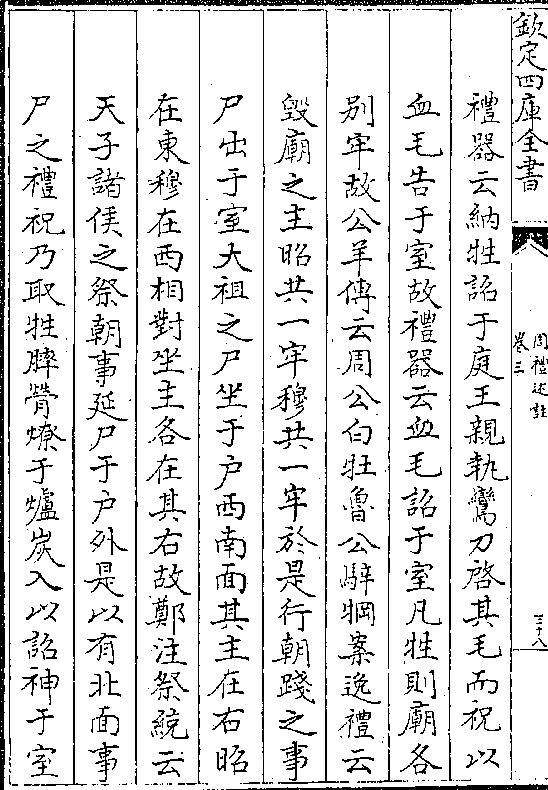 欽定四庫全書
周禮述註
卷三
三十八
禮器云納牲詔于庭王親執鸞刀啓其毛而祝以
血毛告于室故禮器云血毛詔于室凡牲則廟各
别牢故公羊傳云周公白牡魯公騂犅案逸禮云
毀廟之主昭共一牢穆共一牢於是行朝踐之事
尸出于室大祖之尸坐于户西南面其主在右昭
在東穆在西相對坐主各在其右故鄭注祭統云
天子諸侯之祭朝事延尸于户外是以有北面事
尸之禮祝乃取牲膟膋燎于爐炭入以詔神于室